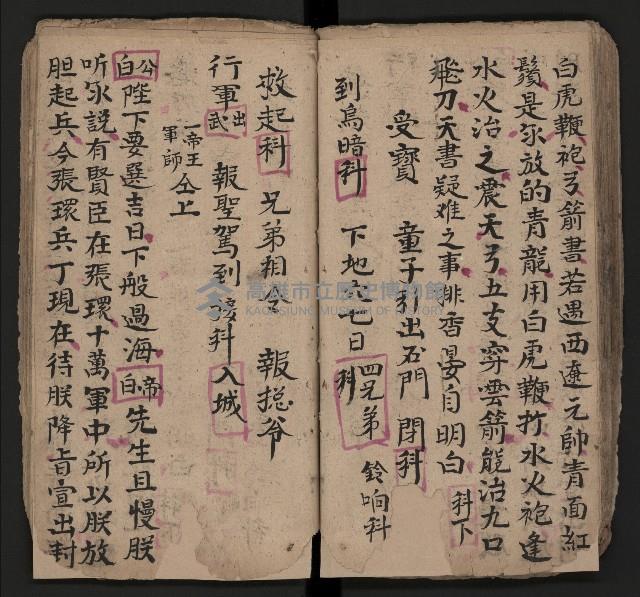 白虎鞭袍弓箭書若遇西遼元帥青面紅
鬚是尔放的青龍用白虎鞭打水火袍逢
水火治之震天弓五支穿雲箭能治九口
飛刀天書疑难之事排香晏自明白 科下
受寶 童子科出石門 閉科
到烏暗科 下地穴七日科 四兄弟 鈴响科
救起科 兄弟相 報捴爷
行軍 出武 報聖駕到 接科 入城
一帝王
軍師 仝上
公白 陛下要選吉日下般過海 帝白 先生且慢朕
听尔説有賢臣在張環十萬軍中所以朕放
胆起兵今張環兵丁現在待朕降旨宣出封
高雄市立歷史博物館
KAOHSIUNG MUSEUM OF HISTORY